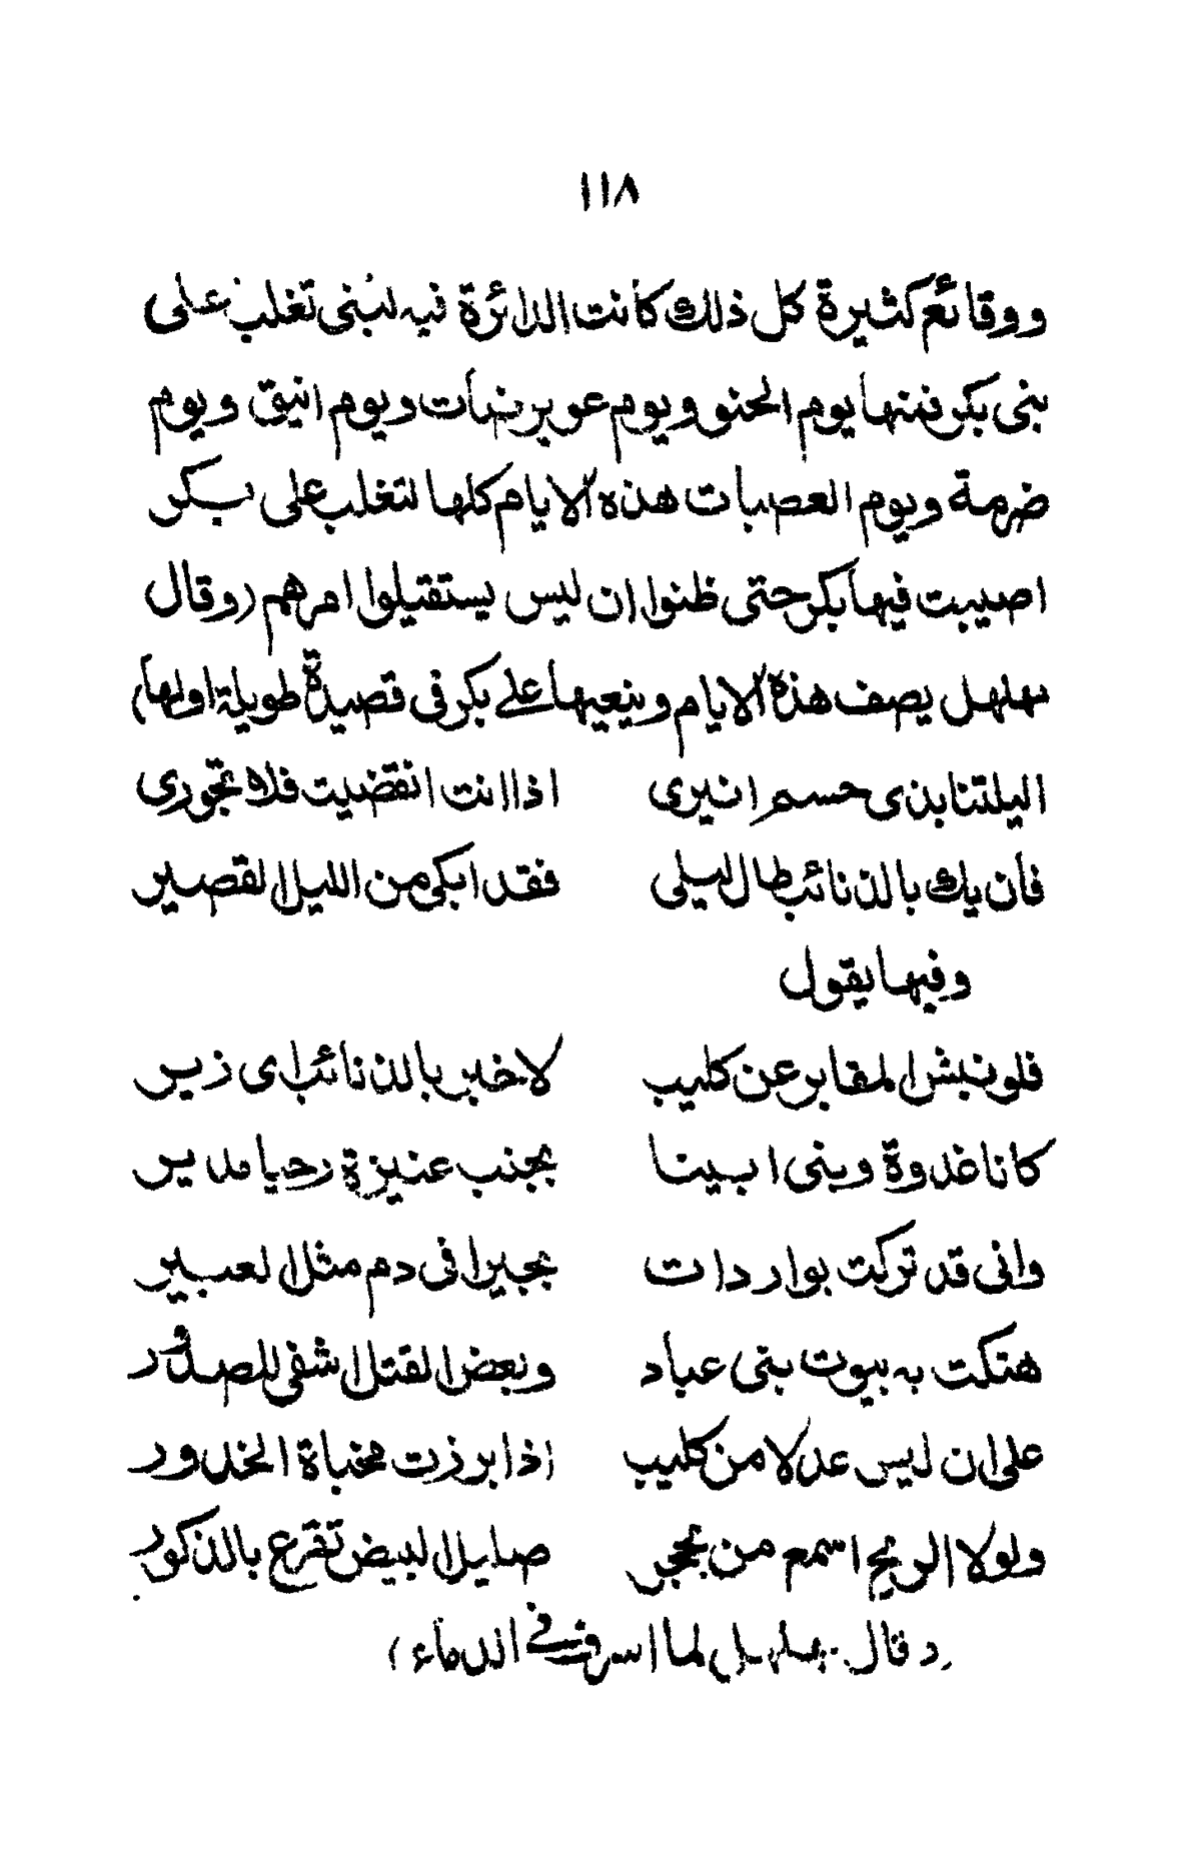 ١١٨
ووقائع كثيرة كل ذلك كانت الدائرة فيه لبنى تغلب على
بنى بكر فمنها يوم الحنو ويوم عويرضات ويوم انيق ويوم
ضرية ويوم العصبات هذه الايام كلها لتغلب على بكر
اصيبت فيها بكر حتى ظنوا ان ليس يستقيلوا امرهم (وقال
مهلهل يصف هذه الايام وينعيها على بكر فى قصيدة طويلة اولها)
اليلتنا بذى حسم انيرى اذا انت انقضيت فلا تحورى
فان يك بالذنائب طال ليلى فقد ابكى من الليل القصير
وفيها يقول
فلو نبش المقابر عن كليب لاخبر بالذنائب اى زير
كانا غدوة وبنى ابينا بجنب عنيزة رحيا مدير
وانى قد تركت بواردات بجيرا فى دم مثل العبير
هتكت به بيوت بنى عباد وبعض القتل اشفى للصدور
على ان ليس عدلا من كليب اذا برزت مخباة الخدور
ولولا الريح اسمع من بحجر صليل البيض تقرع بالذكور
(وقال مهلهل لما اسرف فى الدماء)